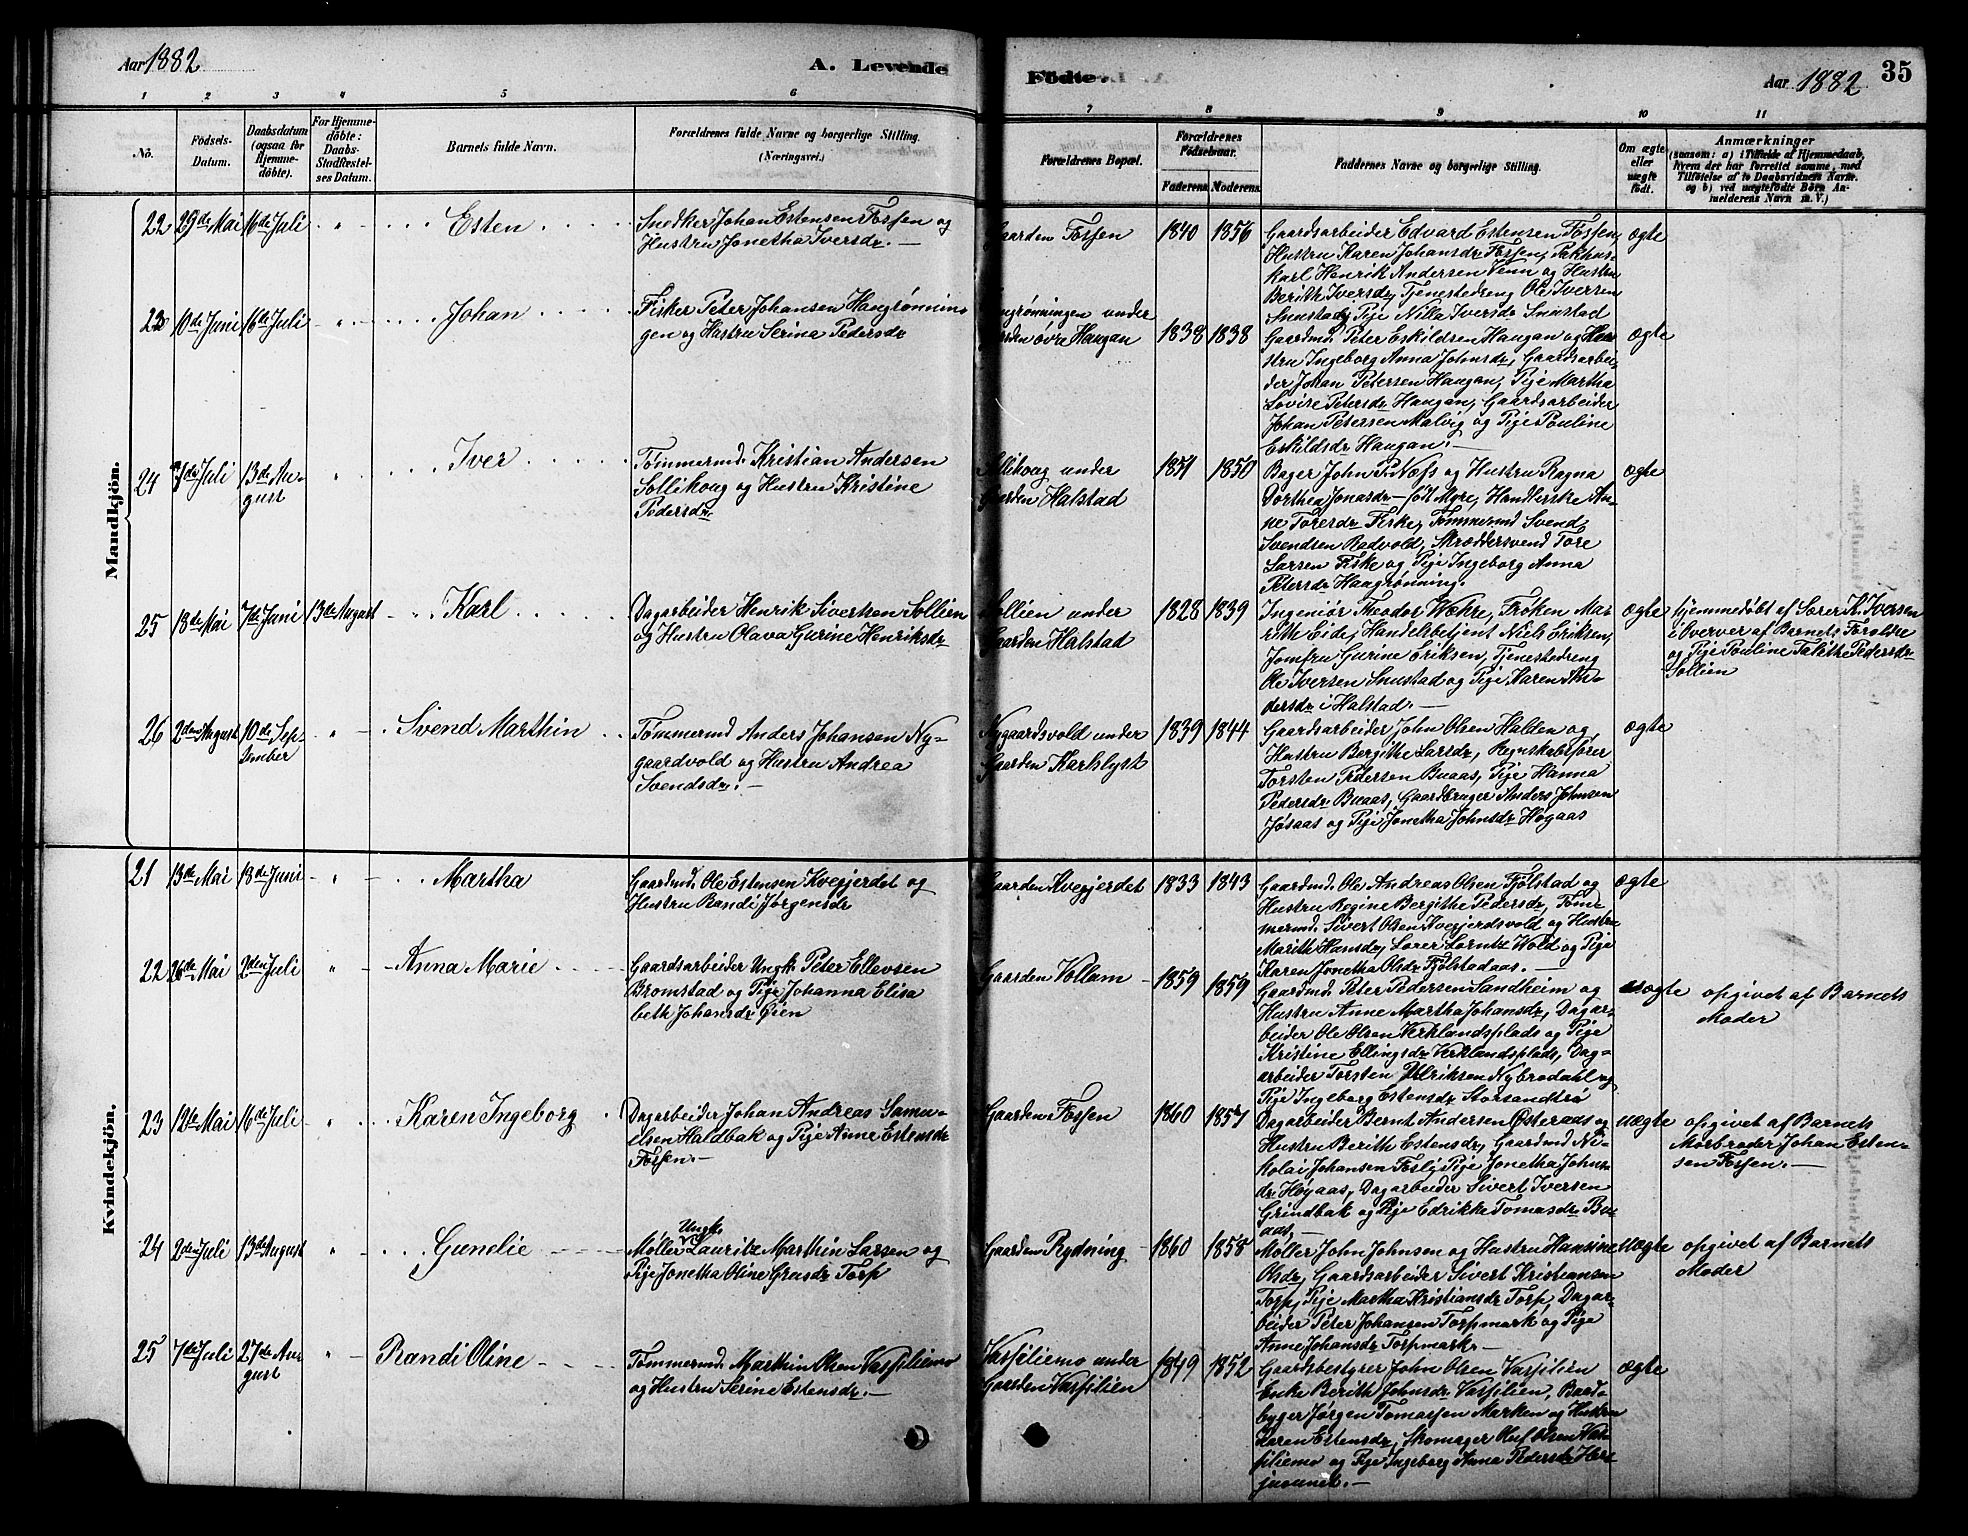 Aar 1882
A. Levende Födte.
Aar 1882
35
1 2 3 4 5 6 7 8 9 10 11
No.
Födsels-
Datum.
Daabsdatum
(ogsaa for
Hjemme-
döbte).
For Hjemme-
döbte:
Daabs-
Stadfæstel-
ses Datum.
Barnets fulde Navn.
Forældrenes fulde Navne og borgerlige Stilling.
(Næringsvei.)
Forældrenes Bopæl.
Forældrenes
Födselsaar.
Faderens. Moderens.
Faddernes Navne og borgerlige Stilling.
Om ægte
eller
uægte
födt.
Anmærkninger
(saasom: a) i Tilfælde af Hjemmedaab,
hvem der har forrettet samme, med
Tilföielse af to Daabsvidners Navne,
og b) ved uægtefödte Börn An-
melderens Navn m. V.)
Mandkjön.
22 29de Mai 16de Juli " Esten
Snedker Johan Estensen Forsen og
Hustru Jonetha Iversdr. —
Gaarden Forsen
1840 1856
Gaardsarbeider Edvard Estensen Forsen,
Hustru Karen Johansdr Forsen, Pakhus-
karl Henrik Andersen Venn og Hustru
Berith Iversdr, Tjenestedreng Ole Iversen
Snustad, Pige Nilla Iversdr Snustad
ægte
23 10de Juni 16de Juli " Johan
Fisker Peter Johansen Haugrønnin-
gen og Hustru Serina Pedersdr
Haugrønningen under
Gaarden øvre Haugan
1838 1838
Gaardmd. Peter Eskildsen Haugan og Hu-
stru Ingeborg Anna Johnsdr, Gaardsarbei-
der Johan Petersen Haugan, Pige Martha
Lovise Petersdr Haugan, Gaardsarbeider
Johan Petersen Malvig og Pige Pauline
Eskildsdr Haugan. —
ægte
24 Juli 13de Au-
gust " Iver
Tømmermd. Kristian Andersen
Sollikoug og Hustru Kristine
Pedersdr
Sollikoug under
Gaarden Halstad
1851 1850
Bager John P. Næfs og Hustru Ragna
Dorthea Jonasdr — født Myre, Handlerske An-
ne Toresdr Fiske, Tømmermd Svend
Svendsen Radvold, Skræddersvend Tore
Larsen Fiske og Pige Ingeborg Anna
Petersdr Haugrønning. —
ægte
25 18de Mai 7de Juni 13de August " Karl
Dagarbeider Henrik Sivertsen Sollien
og Hustru Olava Gurine Henriksdr
Sollien under
Gaarden Halstad
1828 1839
Ingeniør Theodor Wæhre, Frøken Ma-
rith Eide, Handelsbetjent Niels Eriksen,
Jomfru Gurine Eriksen, Tjenestedreng
Ole Iversen Snustad og Pige Karen An-
dersdr i Halstad. —
ægte
hjemmedøbt af Lærer K. Iversen
i Overvær af Barnets Forældre
og Pige Pauline Talitha Pedersdr
Sollien
26 2den August 10de Sep-
tember " Svend Marthin
Tømmermd Anders Johansen Ny-
gaardvold og Hustru Andrea
Svendsdr. —
Nygaardsvold under
Gaarden Karlslyst
1839 1844
Gaardsarbeider John Olsen Halden og
Hustru Bergithe Larsdr, Regnskabsfører
Torsten Pedersen Buaas, Pige Hanna
Pedersdr Buaas, Gaardbruger Anders Johnsen
Jøsaas og Pige Jonetha Johnsdr Høgaas
ægte
Kvindekjön.
21 13de Mai 18de Juni " Martha
Gaardmd. Ole Estensen Kvegjerdet og
Hustru Randi Jørgensdr
Gaarden Kvegjerdet
1833 1843
Gaardmd. Ole Andreas Olsen Fjølstad og
Hustru Regine Bergithe Pedersdr, Tøm-
mermd. Sivert Olsen Kvegjerdsvold og Hustru
Marith Hansdr, Lærer Lorntz Wold og Pige
Karen Jonetha Olsdr Fjølstadaas. —
ægte
22 26de Mai 2den Juli " Anna Marie
Gaardsarbeider Ungk. Peter Ellevsen
Bromstad og Pige Johanna Elisa
beth Johansdr Gien
Gaarden Vollam
1859 1859
Gaardmd. Peter Pedersen Sandheim og
Hustru Anne Martha Johansdr, Dagar-
beider Ole Olsen Verklandsplads og Pige
Kristine Ellingsdr Verklandsplads, Dag-
arbeider Torsten Ulriksen Nybrodahl og
Pige Ingeborg Estensdr Storsandtrø
uægte
opgivet af Barnets
Moder
23 12te Mai 16de Juli " Karen Ingeborg
Dagarbeider Johan Andreas Samu-
elsen Haldbak og Pige Anne Estensdr
Forsen. —
Gaarden Forsen
1860 1857
Dagarbeider Bernt Andersen Østeraas og
Hustru Berith Estensdr, Gaardmd Ni-
kolai Johansen Fosli, Pige Jonetha Johns-
dr Høgaas, Dagarbeider Sivert Iversen
Grindbak og Pige Edrikke Tomasdr Bu-
aas, —
uægte
opgivet af Barnets
Morbroder Johan Esten-
sen Forsen. —
24 2den Juli 13de August " Gunelie
Ungk.
Møller Lauritz Marthin Larsen og
Pige Jonetha Oline Greisdr Torp
Gaarden Rydning
1860 1858
Møller John Johnsen og Hustru Hansine
Olsdr, Gaardsarbeider Sivert Kristiansen
Torp, Pige Martha Kristiansdr Torp, Dagar-
beider Peter Johansen Torpmark og Pige
Anne Johansdr Torpmark. —
uægte
opgivet af Barnets
Moder
25 7de Juli 27de Au-
gust " Randi Oline
Tømmermd. Marthin Olsen Vasfiliemo
og Hustru Serine Estensdr. —
Vasfiliemo under
Gaarden Vasfilien
1849 1852
Gaardsbestyrer John Olsen Vasfilien
Enke Berith Johnsdr Vasfilien, Baad-
bygger Jørgen Tomassen Marken og Hustru
Karen Estensdr, Skomager Oluf Olsen Vas-
filiemo og Pige Ingeborg Anna Pedersdr Her-
juaunet. —
ægte